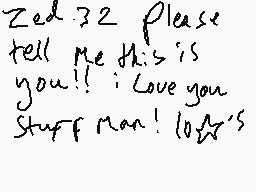 Zed 32 Please
tell me this is
you!! i Love you
stuff man! 10☆'s